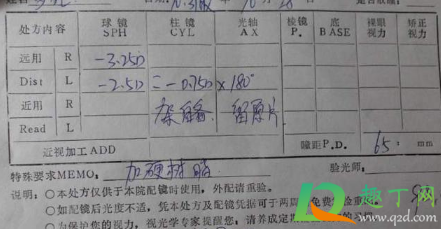 处方内容 球镜 SPH 柱镜 CYL 光轴 AX 棱镜 P. 底 BASE 裸眼视力 矫正视力
远用 R -3.25D
Dist L -2.50 = -0.75D × 180°
近用 R
Read L
近视加工 ADD 瞳距P.D. 65 mm
特殊要求MEMO: 加硬 验光师:
说明:○本处方仅供于本院配镜时使用,外配请重验。
○如配镜后光度不适,凭本处方及配镜凭据可于两 免费 验
○为保护您的视力,视光学专家提醒您:请养成定期
趣丁网
www.qzd.com